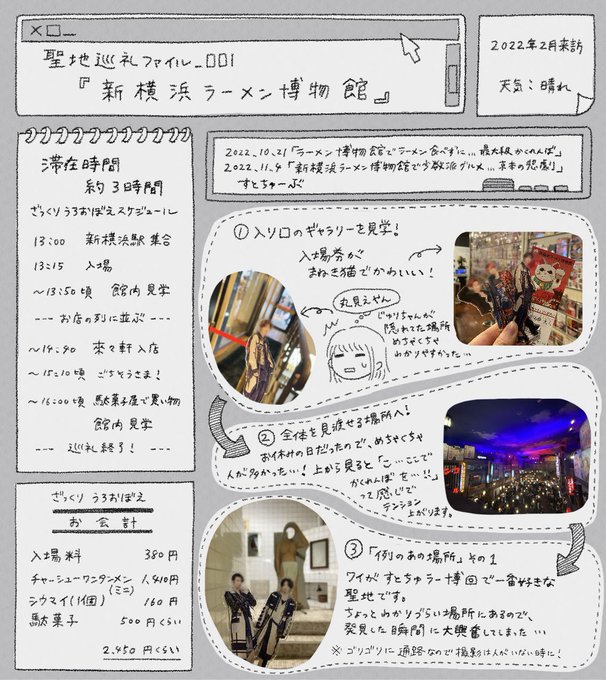 聖地巡礼ファイル_001
『新横浜ラーメン博物館』
2022年2月来訪
天気：晴れ
滞在時間
約3時間
ざっくりうろおぼえスケジュール
13:00 新横浜駅集合
13:15 入場
〜13:50頃 館内見学
--- お店の列に並ぶ ---
〜14:40 來々軒入店
〜15:10頃 ごちそうさま!
〜16:00頃 駄菓子屋で買い物
館内見学
--- 巡礼終了! ---
ざっくりうろおぼえ
お会計
入場料 380円
チャーシューワンタンメン 1,410円
(ミニ)
シウマイ(1個) 160円
駄菓子 500円くらい
2,450円くらい
2022.10.21「ラーメン博物館でラーメン食べずに...最大級かくれんぼ」
2022.11.4「新横浜ラーメン博物館で少数派グルメ...京本の悲劇」
すとちゅーぶ
①入り口のギャラリーを見学!
入場券が
まねき猫でかわいい!
丸見えやん
じゅりちゃんが
隠れてた場所
めちゃくちゃ
わかりやすかった...
②全体を見渡せる場所へ!
お休みの日だったので、めちゃくちゃ
人が多かった...!上から見ると「こ...ここで
かくれんぼを...!!」
って感じで
テンション
上がります。
③「例のあの場所」その1
ワイがすとちゅラー博回で一番好きな
聖地です。
ちょっとわかりづらい場所にあるので、
発見した瞬間に大興奮してしまった...
※ゴリゴリに通路なので撮影は人がいない時に!